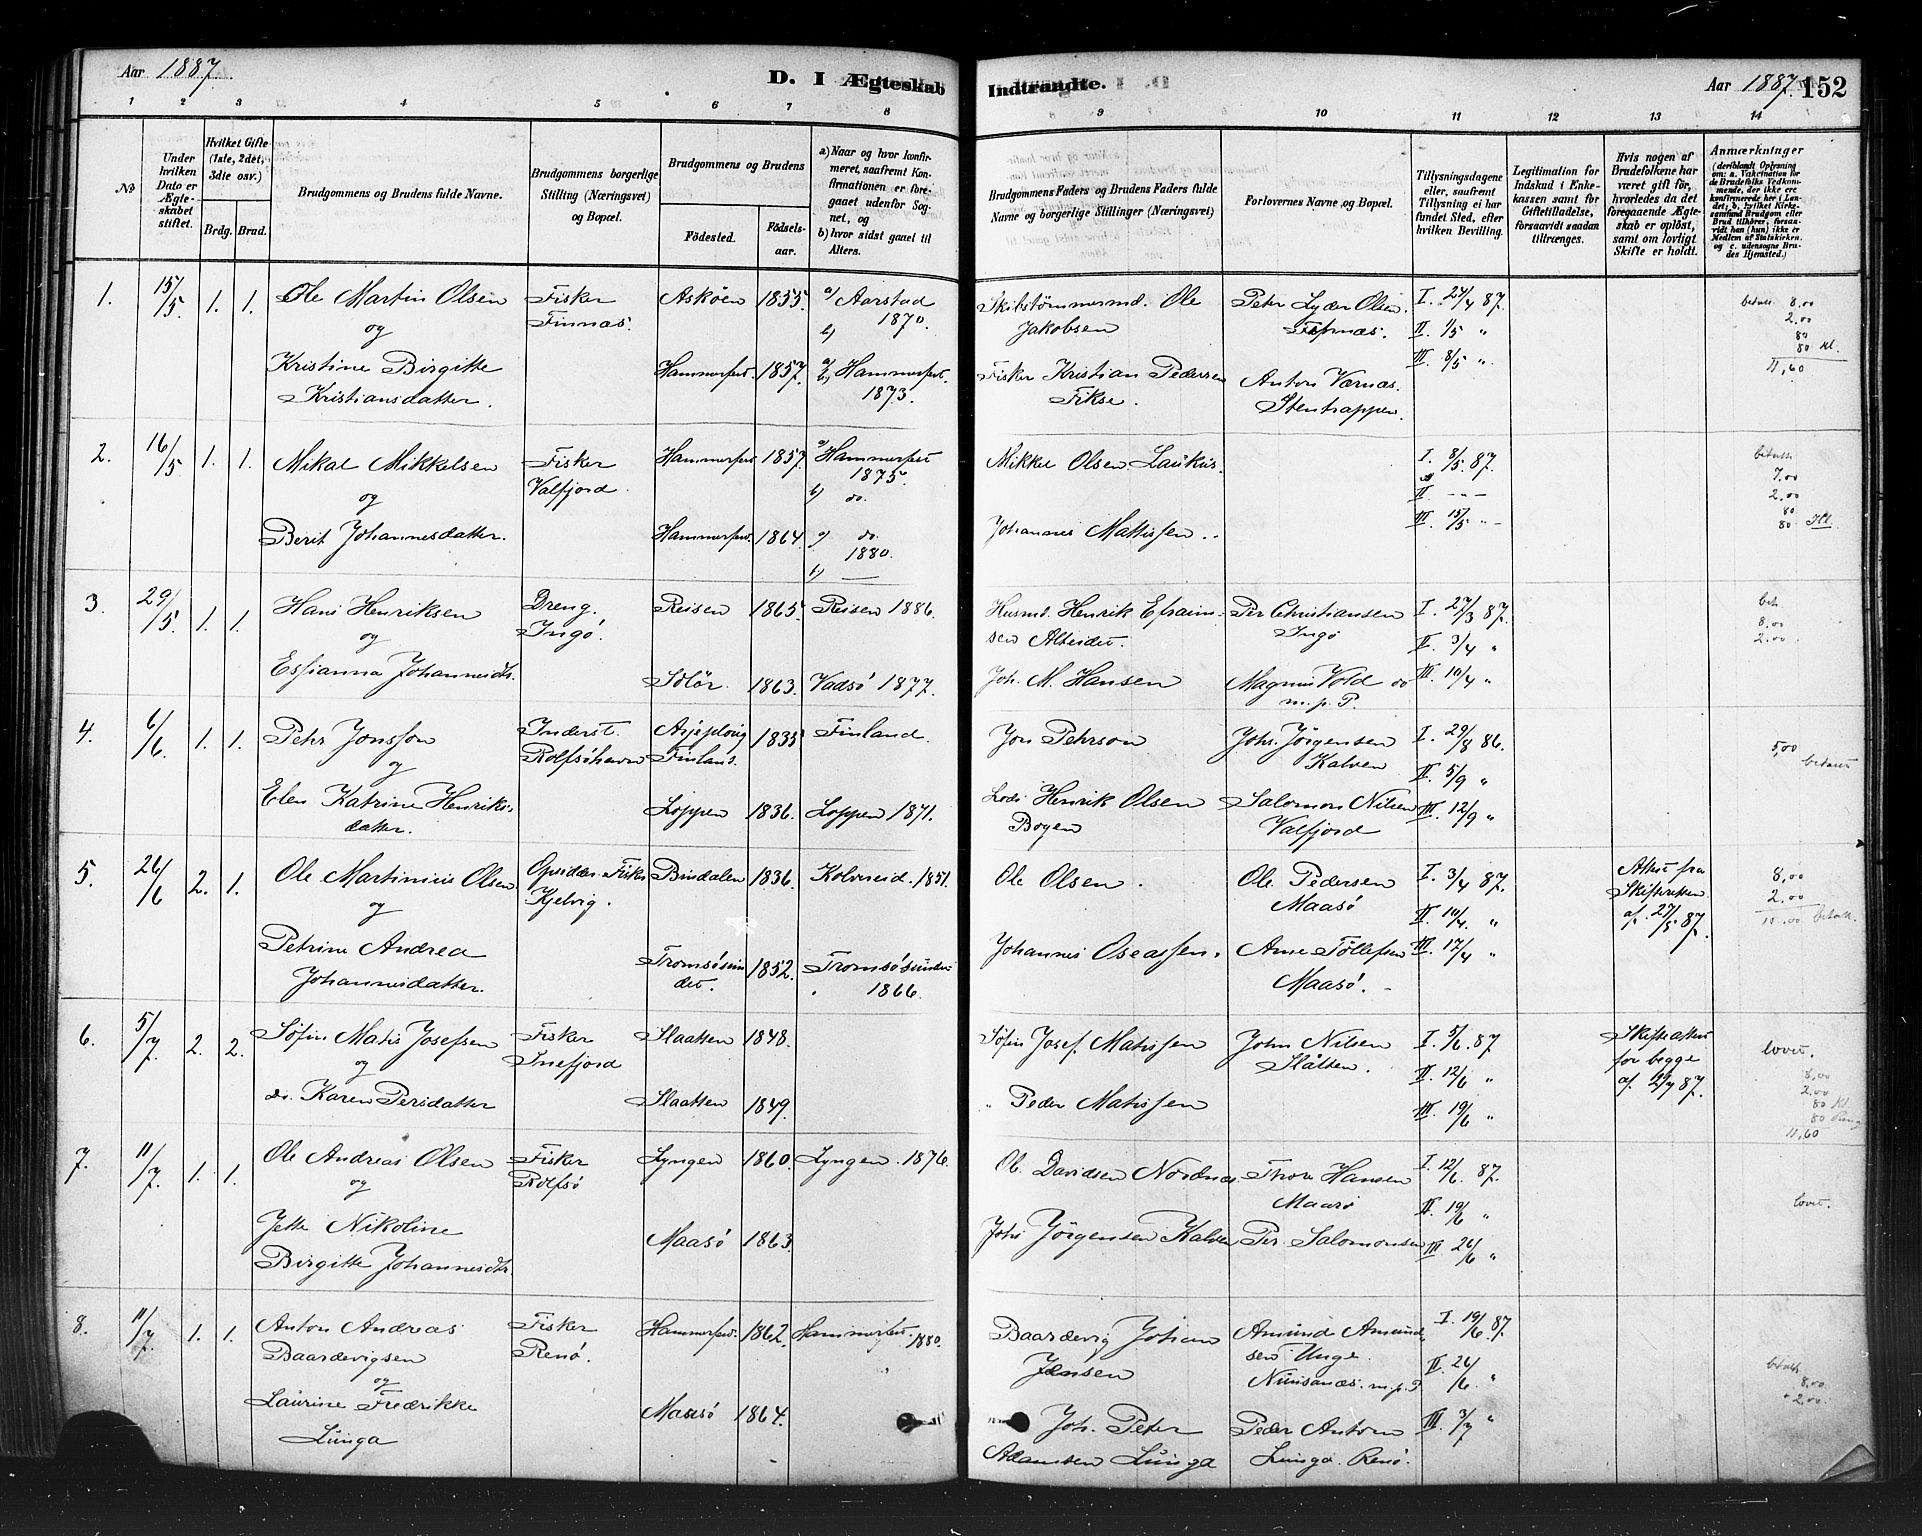 Aar 1887.
D. I Ægteskab
Indtraadte.
Aar 1887. 152
1 2 3 4 5 6 7 8
9 10 11 12 13 14
№
Under hvilken Dato er Ægteskabet stiftet.
Hvilket Gifte (1ste, 2det, 3die osv.)
Brdg. Brud.
Brudgommens og Brudens fulde Navne.
Brudgommens borgerlige Stilling (Næringsvei) og Bopæl.
Brudgommens og Brudens
Fødested.
Fødselsaar.
a) Naar og hvor konfirmeret, saafremt Konfirmationen er foregaaet udenfor Sognet, og
b) hvor sidst gaaet til Alters.
Brudgommens Faders og Brudens Faders fulde Navne og borgerlige Stillinger (Næringsvei)
Forlovernes Navne og Bopæl.
Tillysningsdagene eller, saafremt Tillysning ei har fundet Sted, efter hvilken Bevilling.
Legitimation for Indskud i Enkekassen samt for Giftetilladelse, forsaavidt saadan tiltrænges.
Hvis nogen af Brudefolkene har været gift før, hvorledes da det foregaaende Ægteskab er opløst, samt om lovligt Skifte er holdt.
Anmærkninger
(deriblandt Oplysning om: a. Vakcination for de Brudefolks Vedkommende, der ikke ere konfirmerede her i Landet; b. hvilket Kirkesamfund Brudgom eller Brud tilhører, forsaavidt han (hun) ikke er Medlem af Statskirken, og c. udensogns Brudes Hjemsted.)
1. 15/5 1. 1. Ole Martin Olsen Fisker Askøen 1855. a) Aarstad Skibstømmermd. Ole Peter Lyder Olsen. I. 24/4 87. betalt 8,00
og Finnæs. b) 1870. Jakobsen II. 1/5 " 2,00
80
Kristine Birgitte Hammerfest. 1857. a) b) Hammerfest. Fisker Kristian Pedersen Anton Værnæs. III. 8/5 ". 80 Kl.
Kristiansdatter. 1873. Fikse. Stentrappen. 11,60
2. 16/5 1. 1. Mikal Mikkelsen Fisker Hammerfest 1857. a) Hammerfest Mikkel Olsen Laukus. I. 8/5. 87. betalt
og Valfjord. 1875. b) do. II. - - - 7,00
2,00
Berit Johannesdatter. Hammerfest. 1864. a) do. Johannes Mattissen.. III. 15/5 "- 80
1880. 80 Kl.
b) —
3. 29/5. 1. 1. Hans Henriksen Dreng. Reisen 1865. Reisen 1886. Husmd. Henrik Efraim- Per Christiansen I. 27/3 87. bet.
og Ingø. sen Ingø II. 3/4 " 8,00
2,00
Essianna Johannesdtr. Solør. 1863. Vadsø 1877. Joh. M. Hansen Magnus Vold do III. 10/4 "
m. p. P.
4. 6/6. 1. 1. Pehr Jonsson Inderst. Arjeploug 1835 Finland. Jon Pehrson Johs. Jörgensen I. 29/8 86. 5,00
og Rolfsøhavn Finland. Kalven II. 5/9 " betalt
Elen Katrine Henriks- Loppen 1836. Loppen 1871. Henrik Olsen Salomon Nilsen III. 12/9 "
datter. Bogen Valfjord
5. 26/6 2. 1. Ole Martinius Olsen Opsidder. Fisker Bindalen 1836. Kolvereid. 1851. Ole Olsen. Ole Pedersen I. 3/4 87. Attest fra 8,00
og Kjelvig. Maasø II. 10/4. " Skifteretten 2,00
af 27/5 87. 10,00 betalt.
Petrine Andrea Tromsøsun- 1852. Tromsøsundet Johannes Oseassen. Arne Tollefsen III. 17/4 "
Johannesdatter. det. 1866. Maasø.
6. 5/7. 2. 2. Søfin Matis Josefsen Fisker Slaatten 1848. Søfin Josef Matissen John Nilsen I. 5/6. 87 Skifteattest lovet.
og Snefjord Slåtten. II. 12/6 " for begge 8,00
do. Karen Persdatter Slaatten 1849. " Peder Matissen III. 19/6 " af 2/7 87. 2,00
80 Kl.
80
11,60
7. 11/7. 1. 1. Ole Andreas Olsen Fisker Lyngen 1860. Lyngen. 1876. Ol. Davidsen Nordnæs. Thore Hansen I. 12/6. 87.
og Rolfsø Maasø II. 19/6 " lovet.
Jette Nikoline Maasø 1863. Johs Jörgensen Kalven Per. Salomonsen III. 26/6 "
Birgitte Johannesdtr.
8. 11/7. 1. 1. Anton Andreas Fisker Hammerfest. 1862. Hammerfest. 1880. Baardevig Johan Amund Amund- I. 19/6. 87.
Baardevigsen Renø. Jensen sen Unge. II. 26/6. " betalt
og m. p. P 8,00
Laurine Fredrikke Maasø 1864. Joh. Peter Peder Anton III. 3/7 " + 2,00.
Lunga Adamsen Lunga Lunga. Renø.